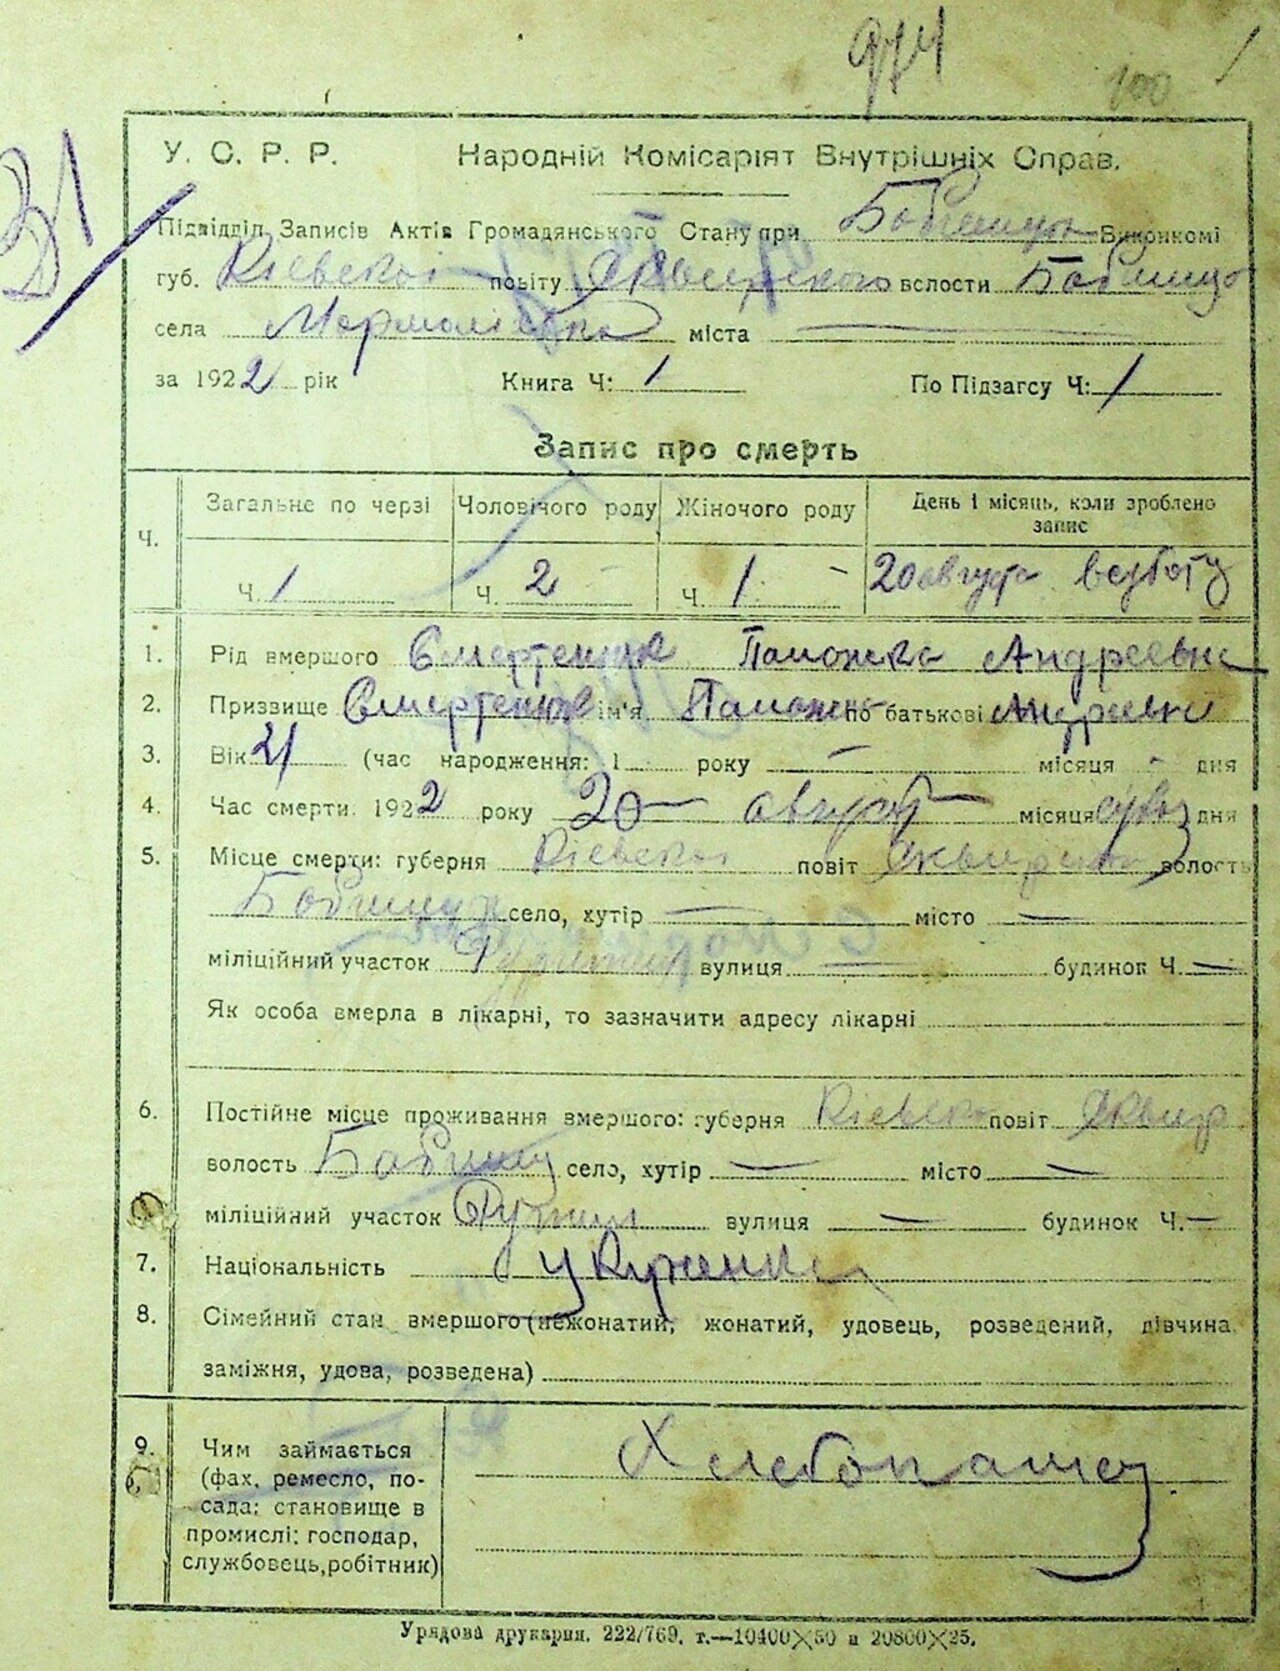 974 100
31
У. С. Р. Р. Народній Комісаріят Внутрішніх Справ.
Підвідділ Записів Актів Громадянського Стану при Виконкомі
губ. Кіевской повіту Сквирского вслости
села міста
за 1922 рік Книга Ч: 1 По Підзагсу Ч: 1
Запис про смерть
Ч. Загальне по черзі Чоловічого роду Жіночого роду День і місяць, коли зроблено
запис
Ч. 1 Ч. 2 — Ч. 1 — 20 августа
1. Рід вмершого Андреевна
2. Призвище ім'я по батькові
3. Вік 21 (час народження: 1 року — місяця - дня
4. Час смерти 1922 року 20 — август — місяця дня
5. Місце смерти: губерня Кіевской повіт Сквирской волость
село, хутір — місто —
міліційний участок вулиця — будинок Ч. —
Як особа вмерла в лікарні, то зазначити адресу лікарні
6. Постійне місце проживання вмершого: губерня Кіевско повіт Сквир
волость село, хутір — місто —
міліційний участок вулиця — будинок Ч. —
7. Національність
8. Сімейний стан вмершого (нежонатий, жонатий, удовець, розведений, дівчина
заміжня, удова, розведена)
9. Чим займається
(фах, ремесло, по-
сада; становище в
промислі: господар,
службовець, робітник)
Хлебопашец
Урядова друкарня. 222/769. т.—10400×50 и 20800×25.